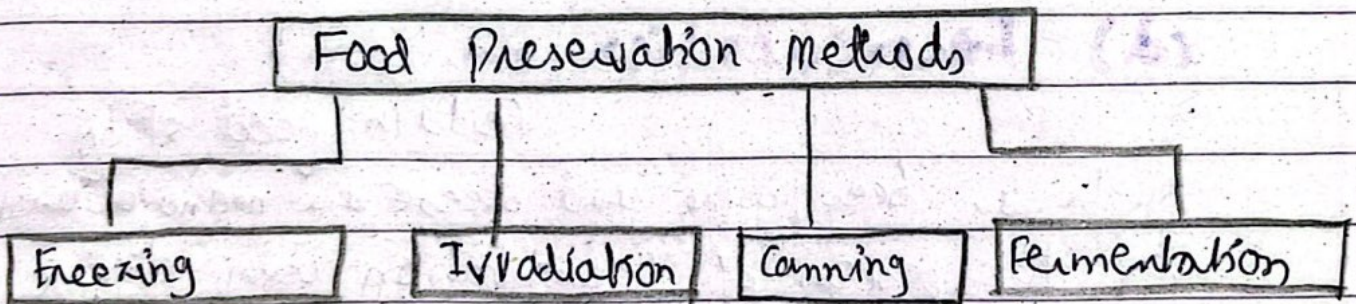 Food Preservation Methods
Freezing
Irradiation
Canning
Fermentation